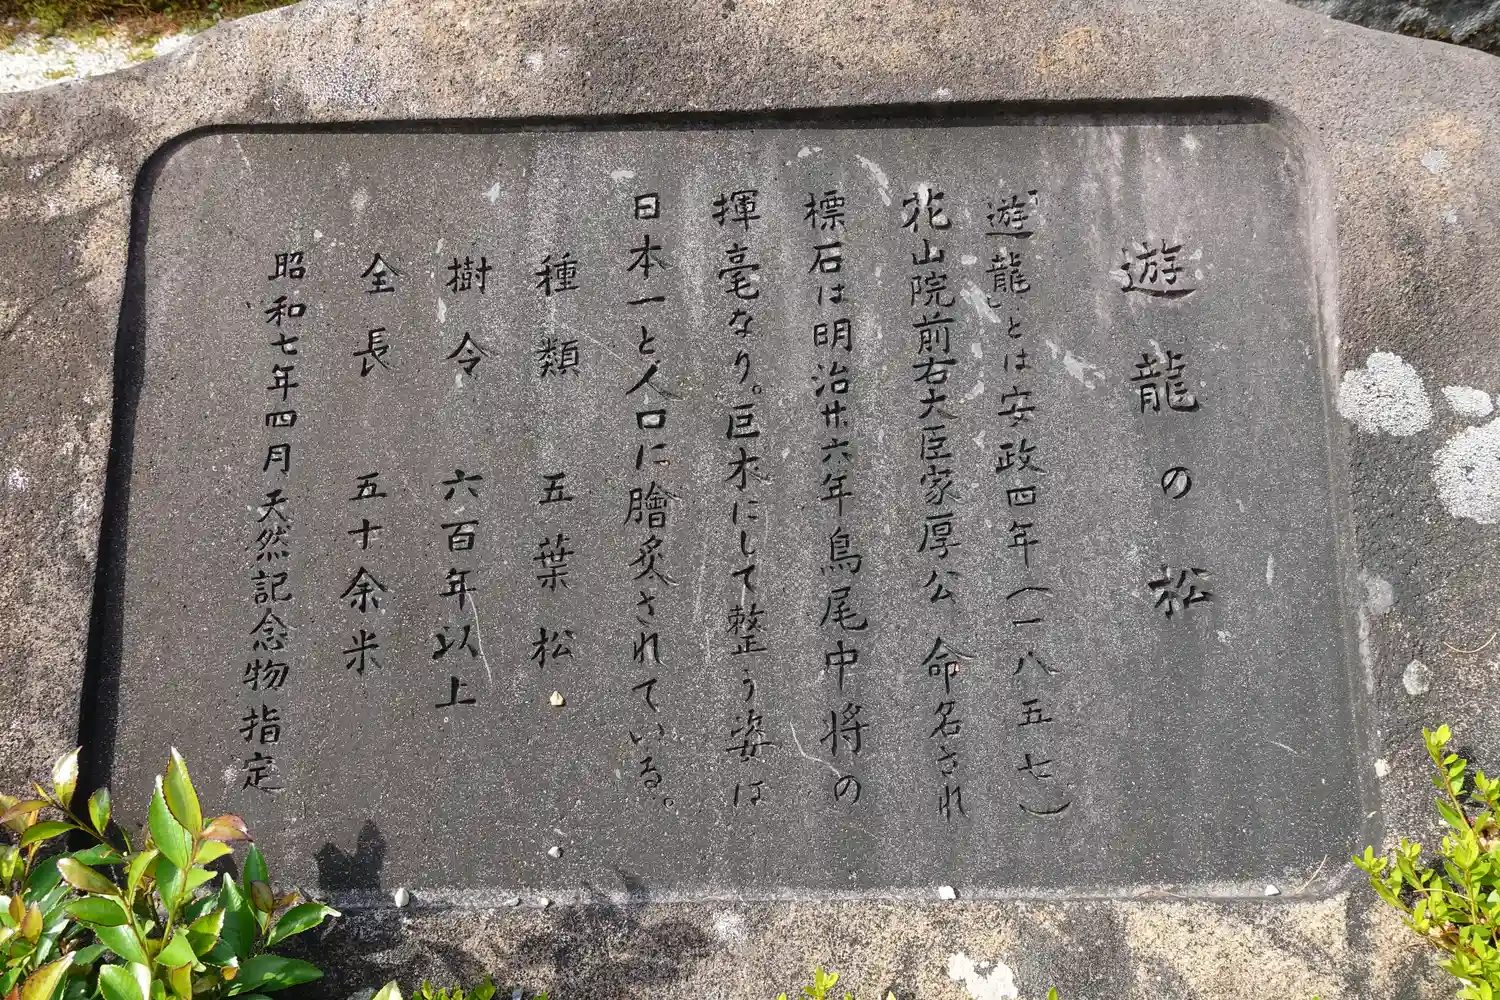 遊龍の松
遊龍とは安政四年（一八五七）
花山院前右大臣家厚公 命名され
標石は明治廿六年鳥尾中将の
揮毫なり。巨木にして整う姿は
日本一と人口に膾炙されている。
種類 五葉松
樹令 六百年以上
全長 五十余米
昭和七年四月天然記念物指定